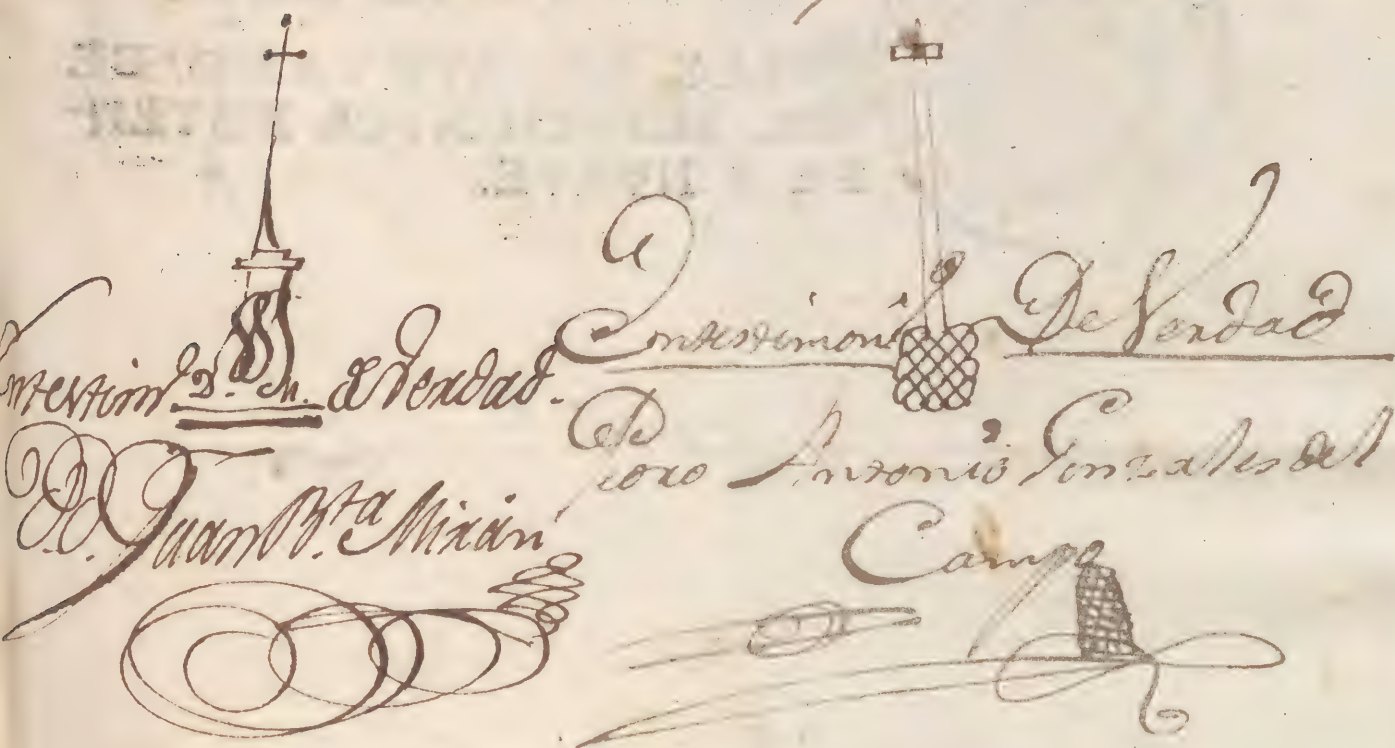 En testimo D. M. de Verdad.
D.D. Juan Bta Mirán
En testimonio De Verdad
Pedro Antonio Gonzales del
Campo